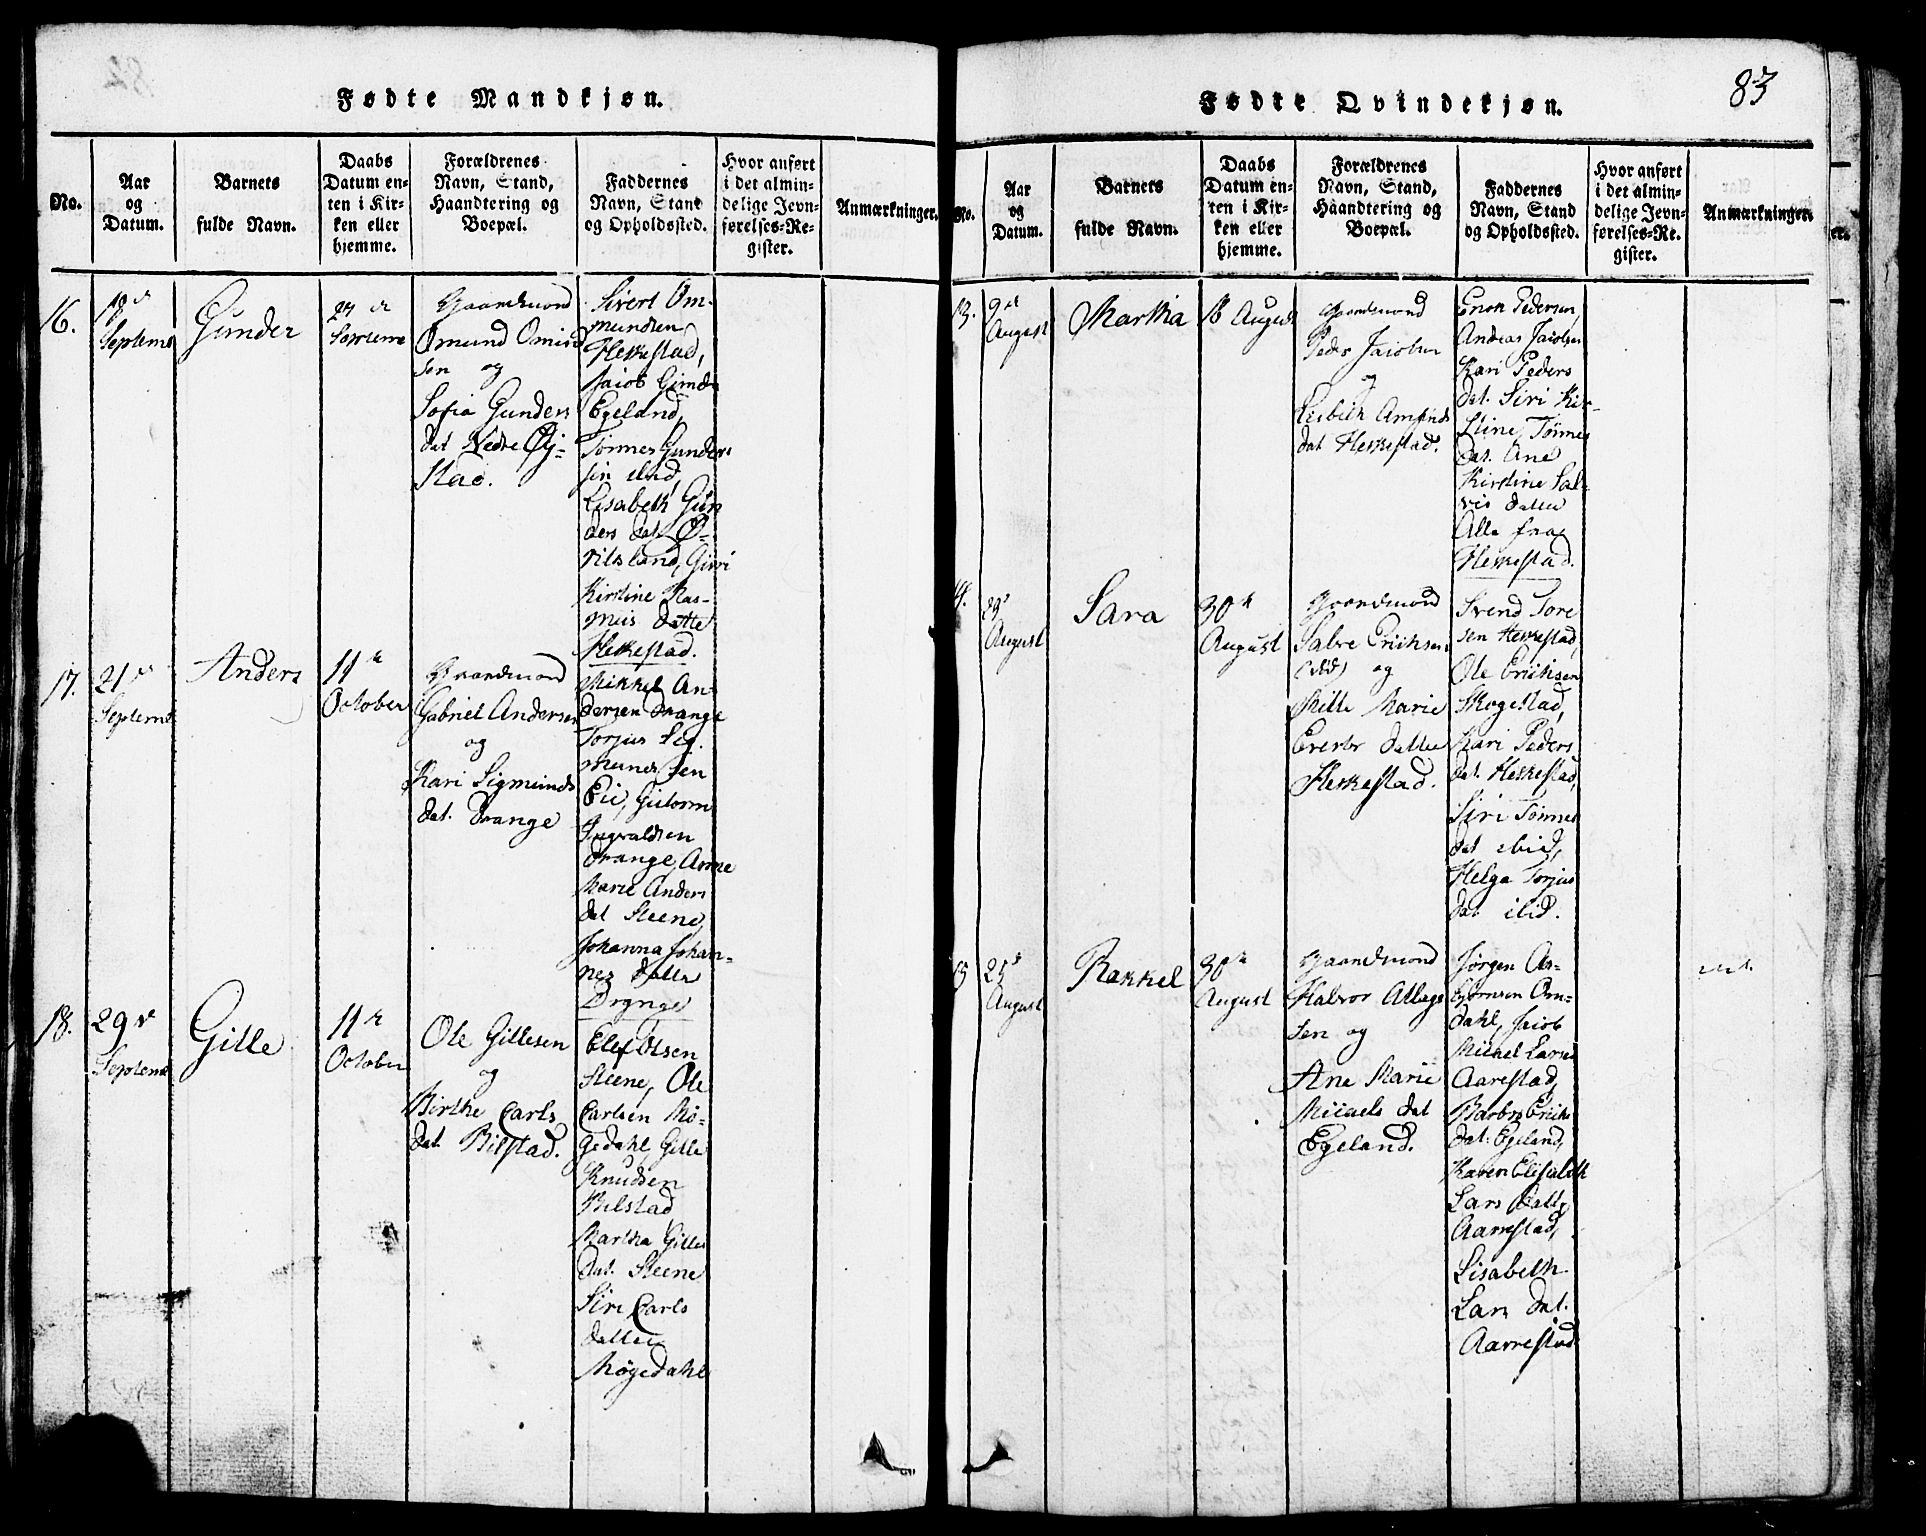 Fødte Mandkjøn.
No.
Aar
og
Datum.
Barnets
fulde Navn.
Daabs
Datum en-
ten i Kir-
ken eller
hjemme.
Forældrenes
Navn, Stand,
Haandtering og
Boepæl.
Faddernes
Navn, Stand
og Opholdssted.
Hvor anført
i det almin-
delige Jevn-
førelses-Re-
gister.
Anmærkninger.
16.
Septemb
Gunder
Gaardmand
Omund Omund
sen og
Sofia Gunders
dat Nedre Øj-
stad.
Sivert Om-
mundsen
Hekkestad,
Jacob
Egeland,
Tönnes Gunder
sen ibid,
Lisabeth Gun
ders dat.
Kirstine Ras-
mus datte
Hekkestad.
17.
21
Septemb
Anders
11
October
Gaardmand
Gabriel Andersen
og
Kari Sigmunds
dat. Drange
Mikkel An-
dersen Drange
Torjus Sig-
munds sen
Eie, Gutorm
Ingvaldsen
Drange, Anne
Marie Anders
dat Steene,
Johanna Johan-
nes datte
18.
29
Septemb
Gille
11
October
Ole Gillesen
og
Birthe Carls
dat. Bilstad.
Elef Olsen
Steene, Ole
Carlsen Mö-
gedahl, Gille
Knudsen
Bilstad
Martha Gilles
dat. Steene
Siri Carls
datter
Møgedahl
83
Fødte Qvindekjøn.
No.
Aar
og
Datum.
Barnets
fulde Navn.
Daabs
Datum en-
ten i Kir-
ken eller
hjemme.
Forældrenes
Navn, Stand,
Haandtering og
Boepæl.
Faddernes
Navn, Stand
og Opholdssted.
Hvor anført
i det almin-
delige Jevn-
førelses-Re-
gister.
Anmærkninger.
13.
9
August
Martha
16 August
Gaardmand
Peder Jacobsen
og
dat Hekkestad.
Enok Pedersen,
Andreas Jacobsen
Kari Peders
dat. Siri Kir-
stine Tönnes
dat. Ane
Kirstine Sal-
ves datter
Alle fra
Hekkestad.
14.
August
Sara
30
August
Gaardmand
Salve Erichsen
(ibid) og
Mille Marie
datter
Hekkestad.
Svend Tore
sen Hekkestad,
Ole Erichsen
Skogestad,
Kari Peders
dat. Hekkestad,
Siri Tönnes
dat ibid,
Helga Torjus
dat ibid.
15
25
August
Rakkel
30
August
Gaardmand
Halvor Allags
sen og
Ane Marie
Michels dat
Egeland.
Jörgen As-
björnsen Om-
dahl, Jacob
Michel Larsen
Aarestad,
Barbro Erichs
dat. Egeland,
Karen Elisabeth
Lars Datte
Aarrestad,
Lisabeth
Lars dat.
Aarrestad